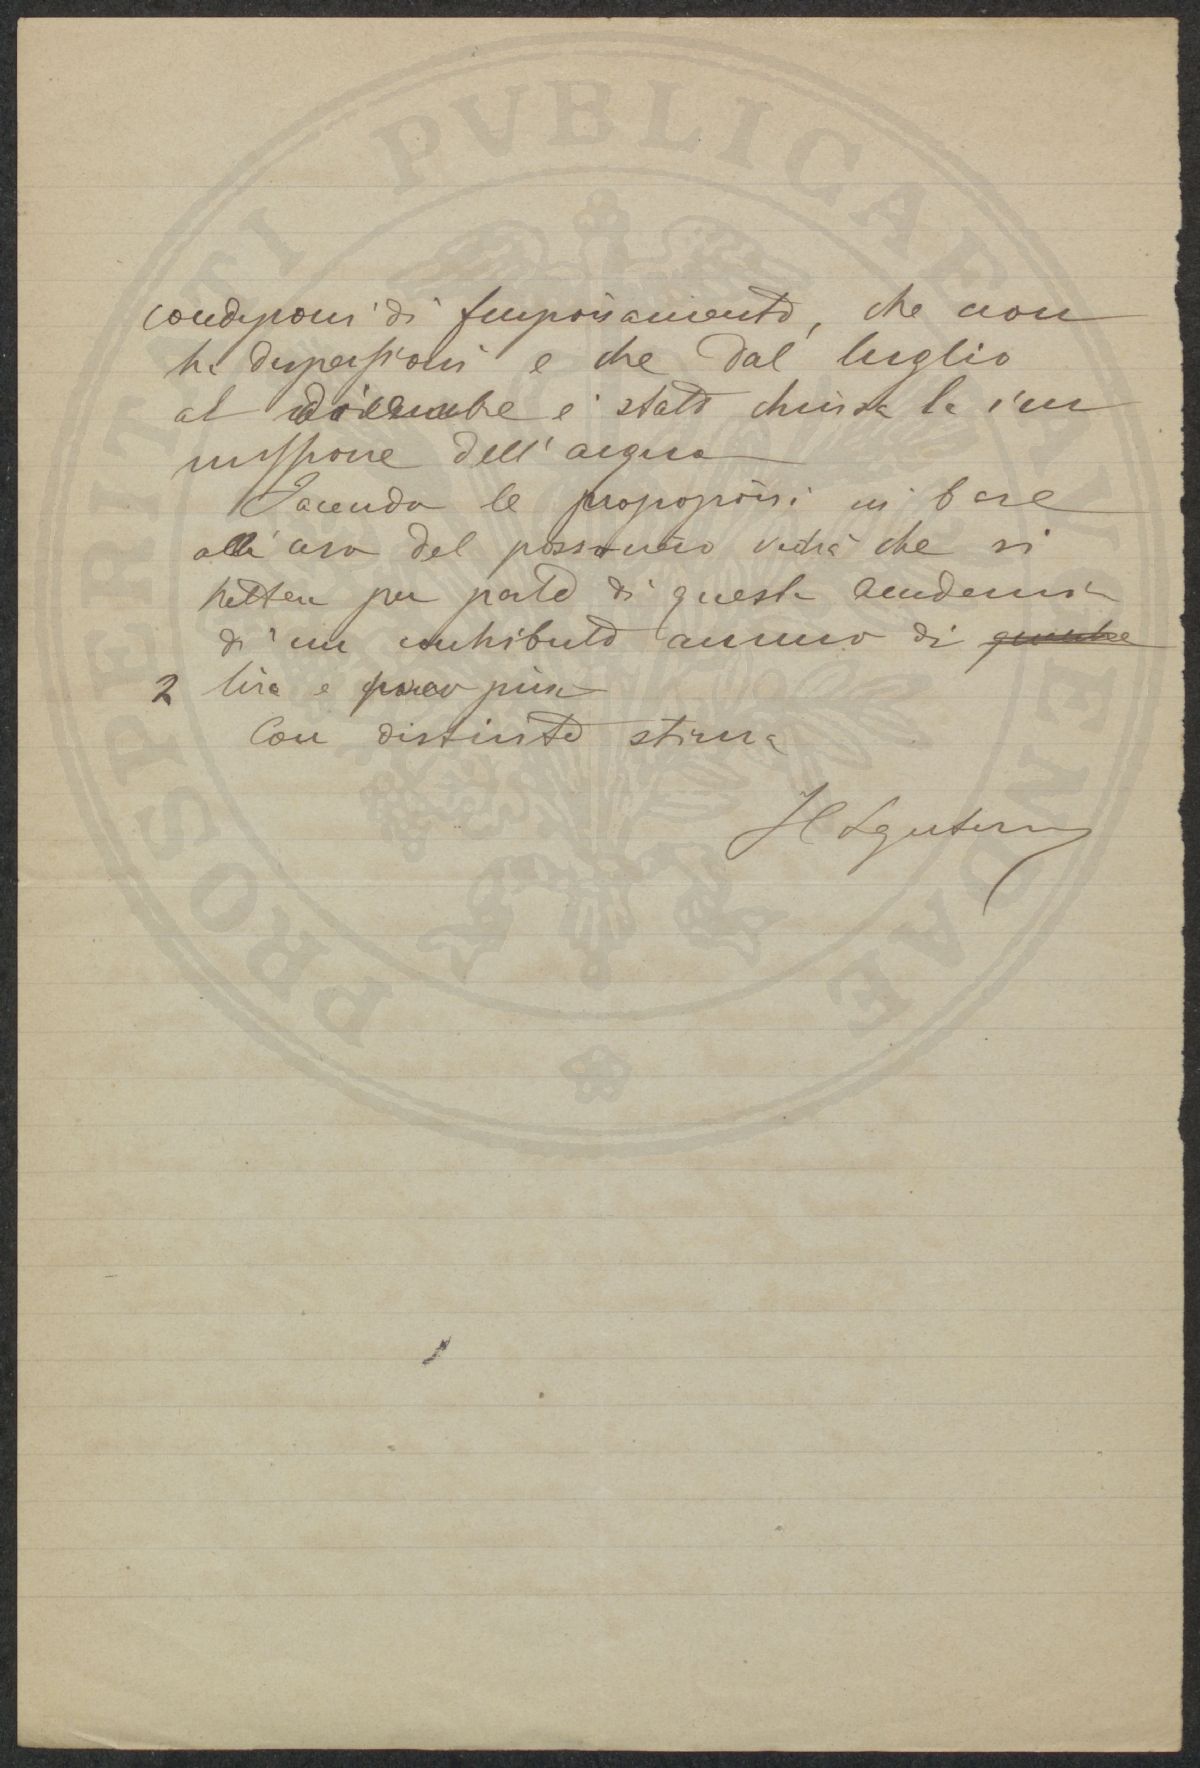 PROSPERITATI PVBLICAE AVGENDAE
condizioni di funzionamento, che non
ha dispersioni e che dal luglio
al dicembre è stata chiusa la im
missione dell'acqua
Facendo le proporzioni in base
all' uso del possono vedrà che si
tratta per parte di questa Accademia
di un contributo annuo di qualche
2 lira e poco più
Con distinta stima
Il